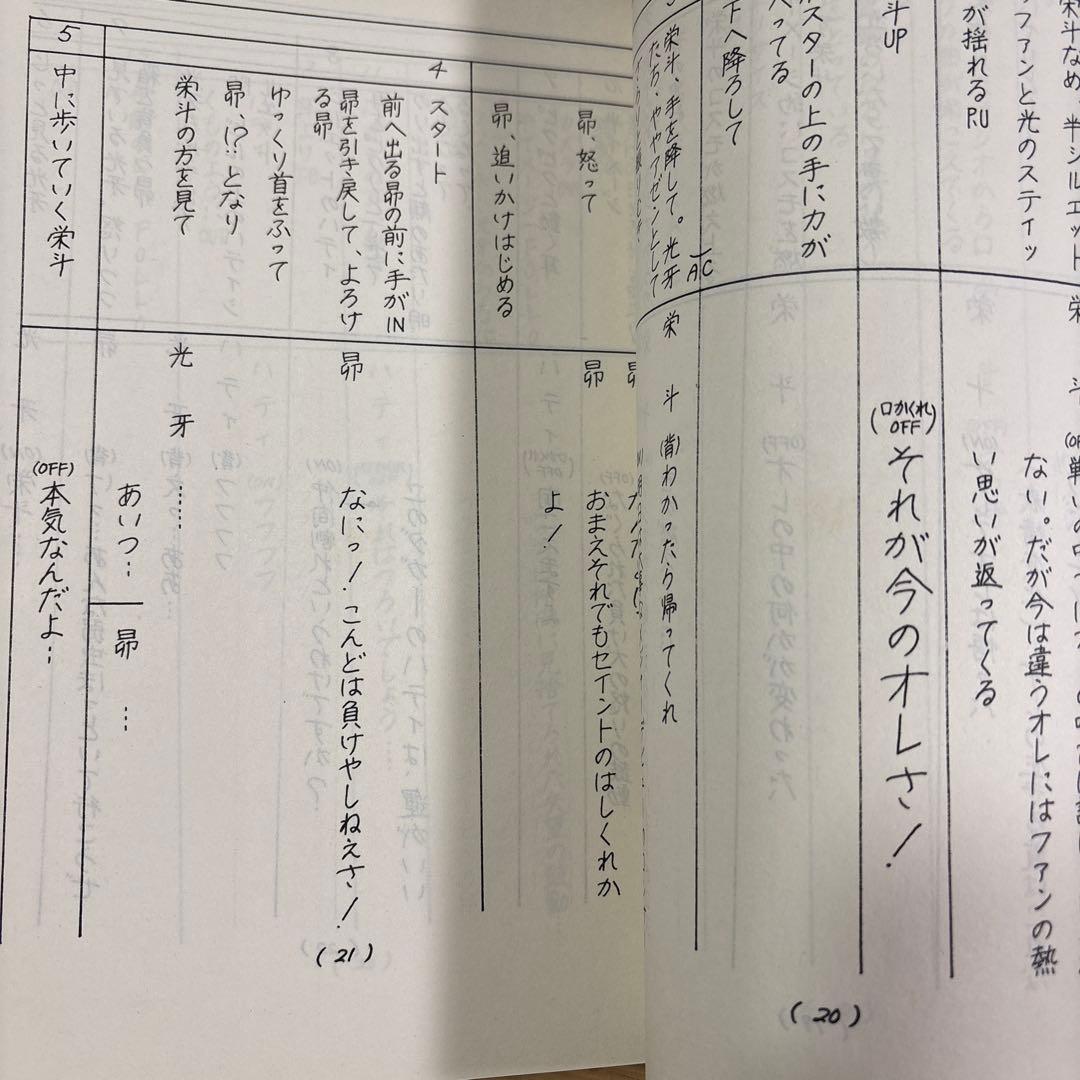 栄斗なめ、半シルエット
ファンと光のスティッ
が揺れるP.U
斗UP
スターの上の手に力が
ってる
下へ降ろして
栄斗、手を降して。光牙
たち、ややアゼンとして
A C
栄
斗
(OFF)
ない。だが今は違うオレにはファンの熱
い思いが返ってくる
(口かくれOFF)
それが今のオレさ!
栄斗
(背)わかったら帰ってくれ
(20)
昴、怒って
昴、追いかけはじめる
昴
おまえそれでもセイントのはしくれか
よ!
4
スタート
前へ出る昴の前に手がIN
昴を引き戻して、よろけ
る昴
ゆっくり首をふって
昴、!?となり
栄斗の方を見て
昴
なにっ!こんどは負けやしねえさ!
光牙
……
あいつ…
昴
…
5
中に歩いていく栄斗
(OFF)
本気なんだよ…
(21)